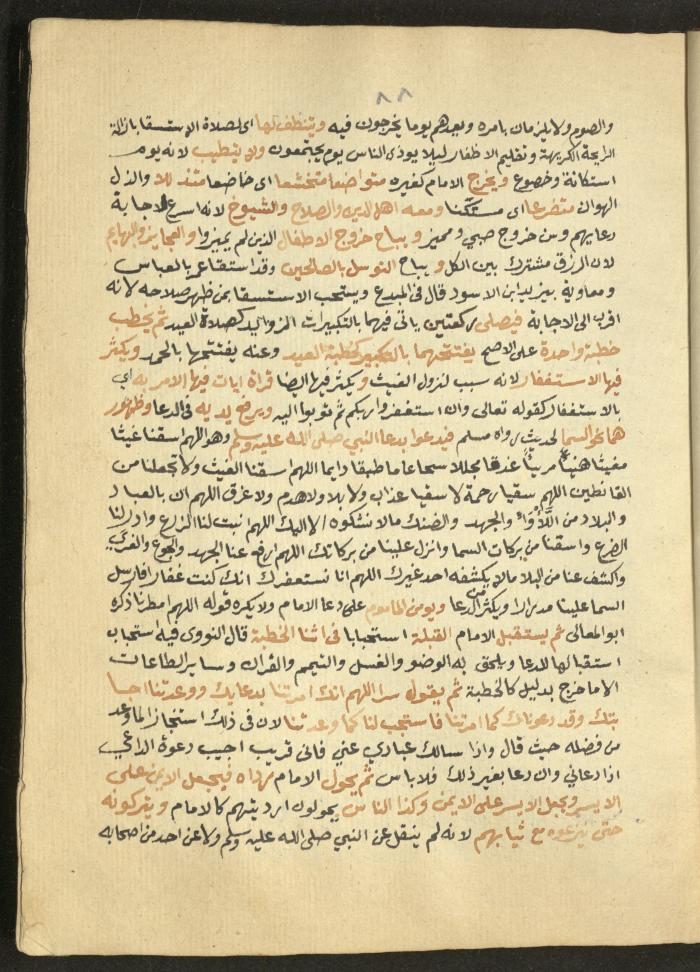 ٨٨
والصوم ولا يلزمان بامره ويعدهم يوما يخرجون فيه ويتنظف لها اى لصلاة الاستسقا بازالة
الرايحة الكريهة وتقليم الاظفار ليلا يوذى الناس يوم يجتمعون ولا يتطيب لانه يوم
استكانة وخضوع ويخرج الامام كغيره متواضعا متخشعا اى خاضعا متذللا والذل
الهوان متضرعا اى مستكنا ومعه اهل الدين والصلاح والشيوخ لانه اسرع لاجابة
دعايهم وسن خروج صبي ومميز ويباح خروج الاطفال الذين لم يميزوا والعجايز والبهايم
لان الرزق مشترك بين الكل ويباح التوسل بالصالحين وقد استسقا عمر بالعباس
ومعاوية بيزيد ابن الاسود قال في المبدع ويستحب الاستسقا بمن ظهر صلاحه لانه
اقرب الى الاجابة فيصلى ركعتين ياتى فيهما بالتكبيرات الزوايد كصلاة العيد ثم يخطب
خطبة واحدة على الاصح يفتتحها بالتكبير كخطبة العيد وعنه يفتتحها بالحمد ويكثر
فيها الاستغفار لانه سبب لنزول الغيث ويكثر فيها ايضا قراة ايات فيها الامر به اي
بالاستغفار كقوله تعالى وان استغفروا ربكم ثم توبوا اليه ويرفع يديه فى الدعا وظهور
هما نحو السما لحديث رواه مسلم فيدعوا بدعا النبي صلى الله عليه وسلم وهو اللهم اسقنا غيثا
مغيثا هنيئا مريئا غدقا مجللا سحا عاما طبقا دايما اللهم اسقنا الغيث ولا تجعلنا من
القانطين اللهم سقيا رحمة لا سقيا عذاب ولا بلا ولا هدم ولا غرق اللهم ان بالعباد
والبلاد من اللأواء والجهد والضنك مالا نشكوه الا اليك اللهم انبت لنا الزرع وادر لنا
الضرع واسقنا من بركات السما وانزل علينا من بركاتك اللهم ارفع عنا الجهد والجوع والعرى
واكشف عنا من البلا مالا يكشفه احد غيرك اللهم انا نستغفرك انك كنت غفارا فارسل
السما علينا مدرارا ويكثر من الدعا ويومن الماموم على دعا الامام ولا يكره قوله اللهم امطرنا ذكره
ابو المعالى ثم يستقبل الامام القبلة استحبابا فى اثنا الخطبة قال النووى فيه استحباب
استقبالها للدعا ويلحق به الوضو والغسل والتيمم والقراة وساير الطاعات
الا ما خرج بدليل كالخطبة ثم يقول سرا اللهم انك امرتنا بدعايك ووعدتنا اجا
بتك وقد دعوناك كما امرتنا فاستجب لنا كما وعدتنا لان فى ذلك استنجازا لما وعد
من فضله حيث قال واذا سالك عبادي عني فانى قريب اجيب دعوة الداعي
اذا دعاني وان دعا بغير ذلك فلا باس ثم يحول الامام رداه فيجعل الايمن على
الايسر ويجعل الايسر على الايمن وكذا الناس يحولون ارديتهم كالامام ويتركونه
حتى ينزعوه مع ثيابهم لانه لم ينقل عن النبي صلى الله عليه وسلم ولا عن احد من اصحابه